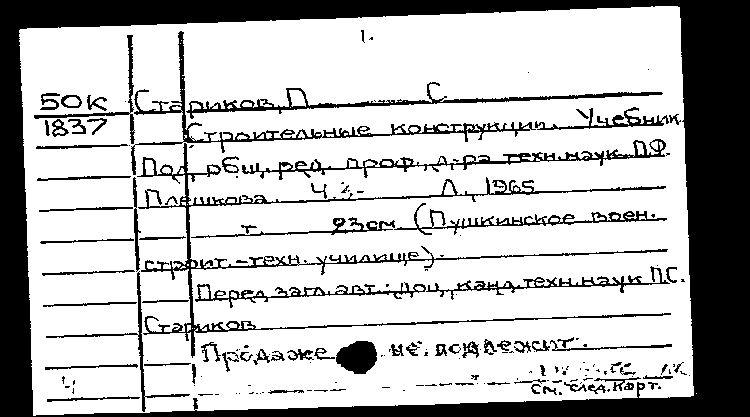 1.
50К Стариков, П. С.
1837 Строительные конструкции. Учебник.
Под общ. ред. проф., д-ра техн. наук П.Ф.
Плешкова. Ч. 3- Л., 1965
т. 23см. (Пушкинское воен.
строит.-техн. училище).
Перед загл. авт.: доц., канд. техн. наук П.С.
Стариков
Продаже не подлежит.
Ч
См. след. карт.